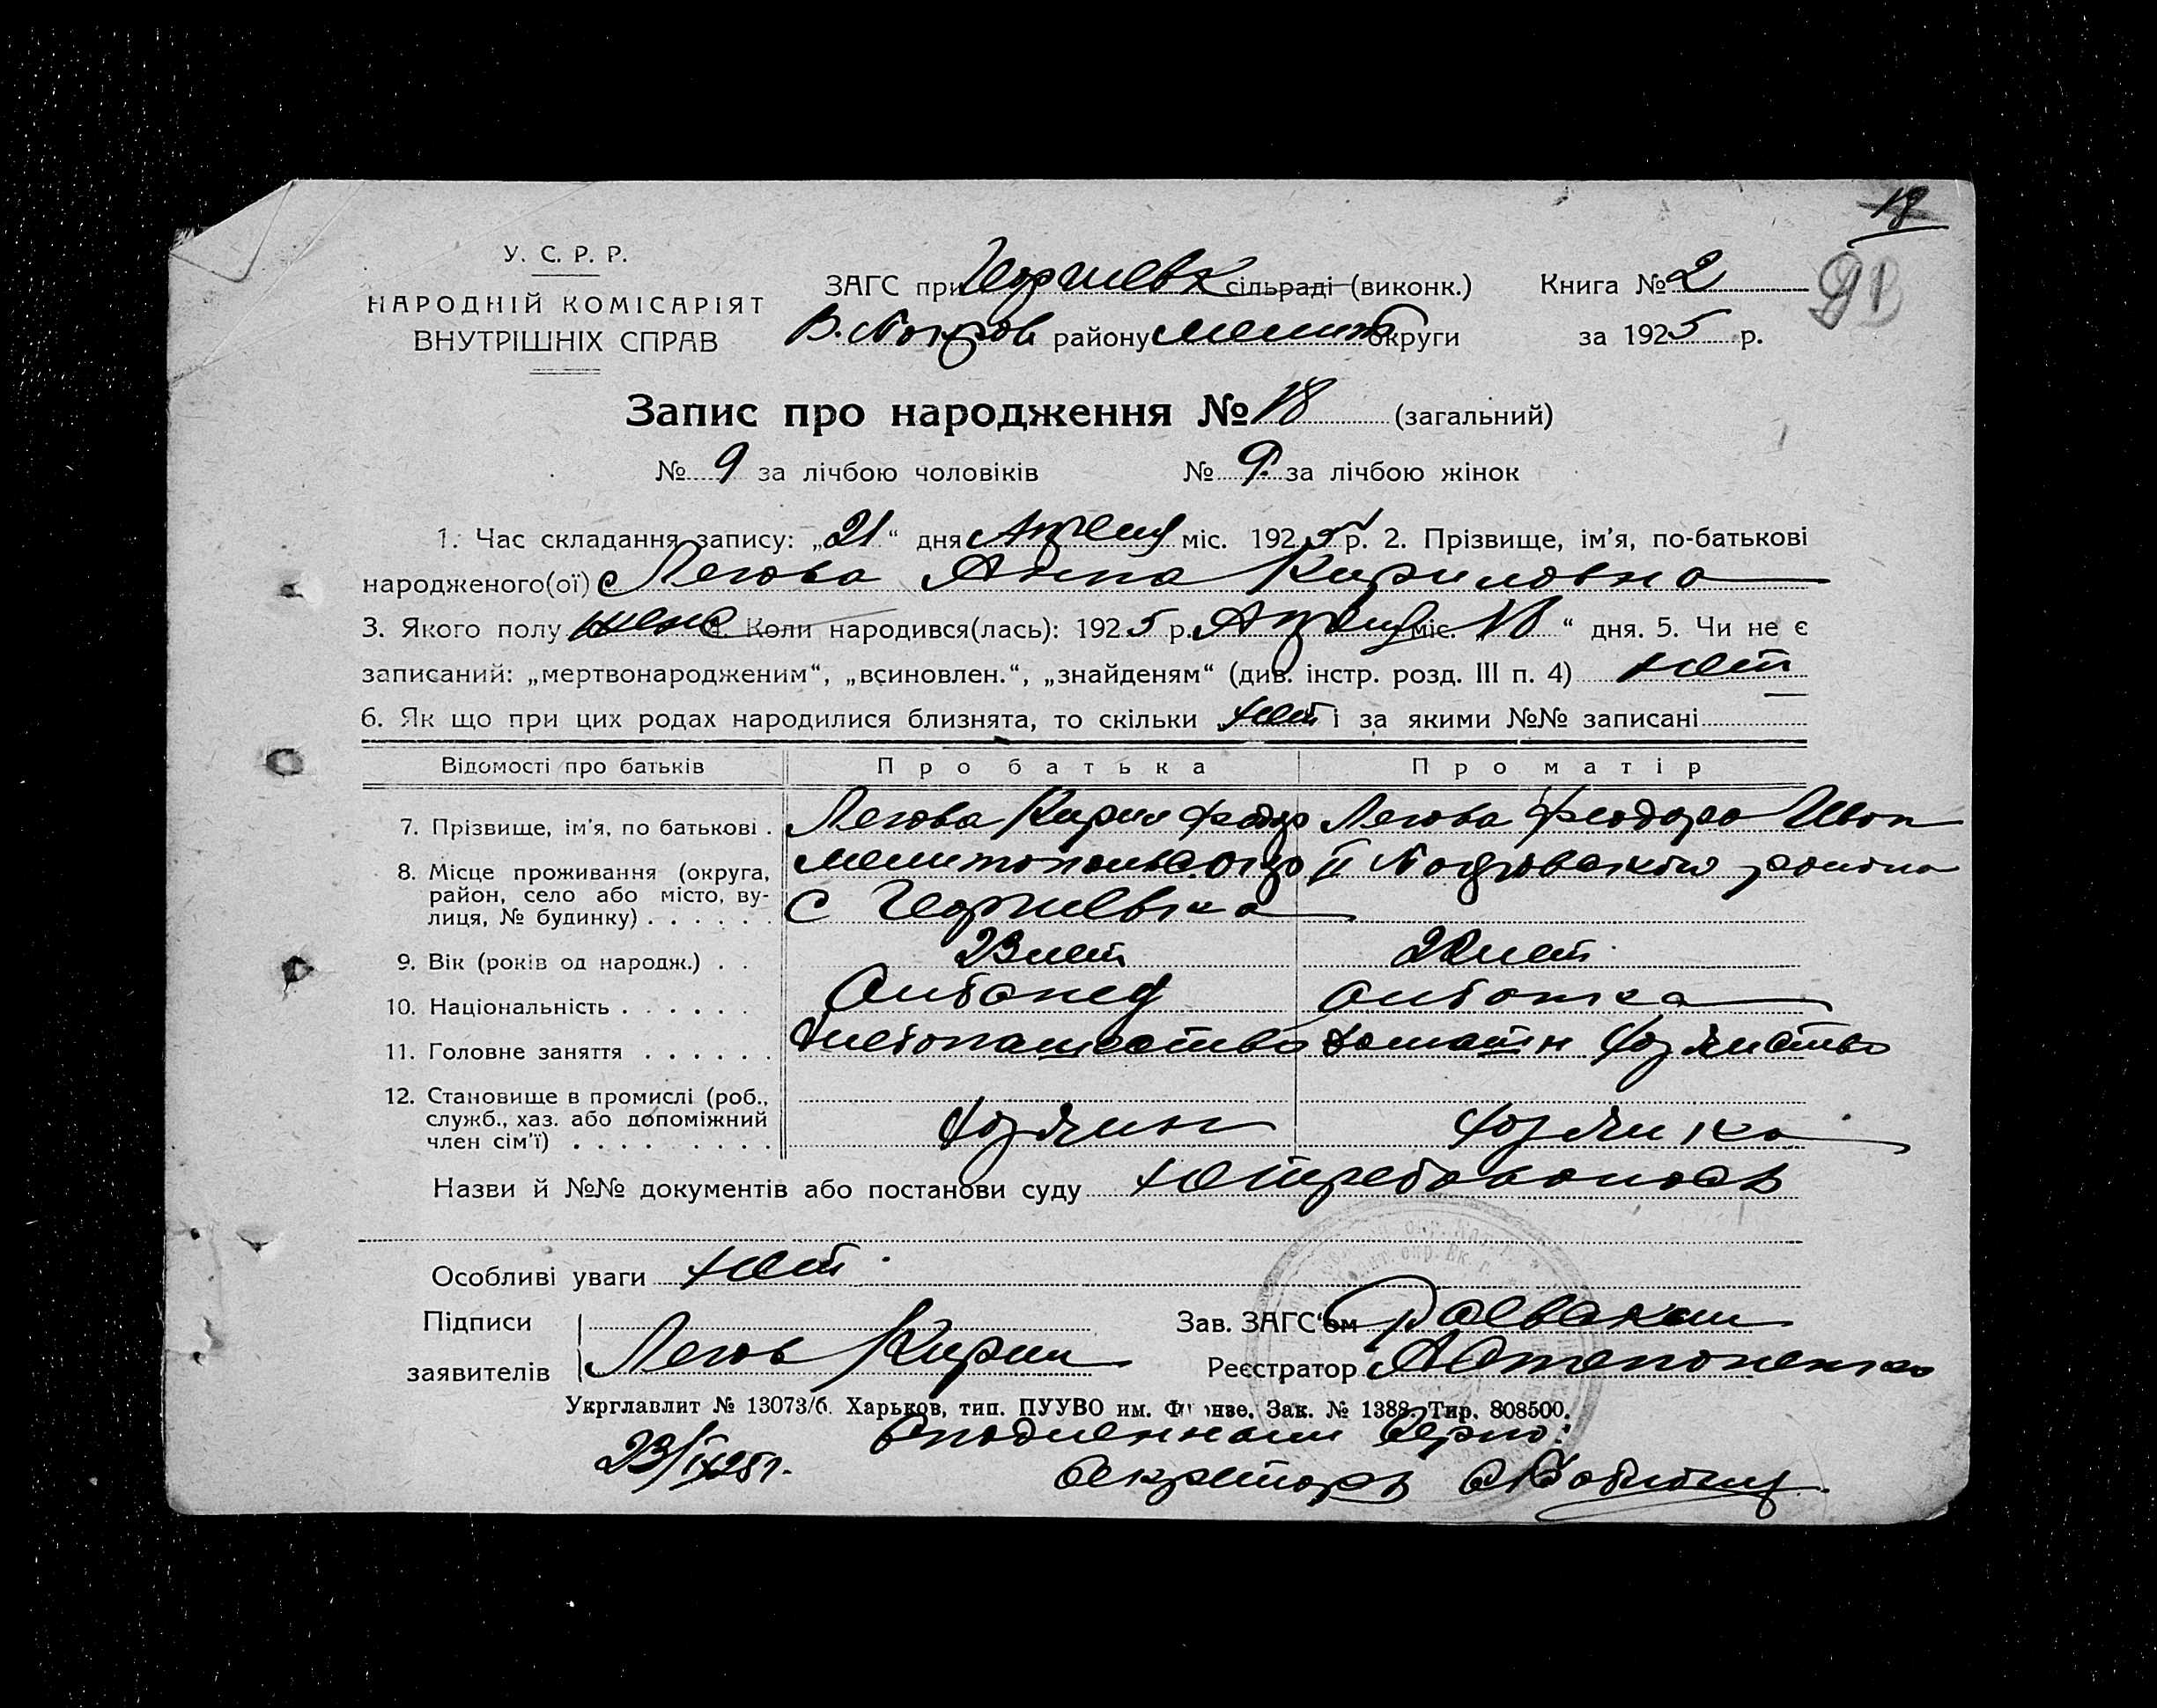 18
У. С. Р. Р.
НАРОДНІЙ КОМІСАРІЯТ
ВНУТРІШНІХ СПРАВ
ЗАГС при сільраді (виконк.)
району Мелит округи
Книга № 2
за 1925 р.
Запис про народження № 18 (загальний)
№ 9 за лічбою чоловіків № 9 за лічбою жінок
1. Час складання запису: „21“ дня Апреля міс. 1925 р. 2. Прізвище, ім'я, по-батькові
народженого(ої) Легова Анна Кириловна
3. Якого полу жене 4. Коли народився(лась): 1925 р. Апреля міс. „18“ дня. 5. Чи не є
записаний: „мертвонародженим“, „всиновлен.“, „знайденям“ (див. інстр. розд. III п. 4) нет
6. Як що при цих родах народилися близнята, то скільки нет і за якими №№ записані
Відомості про батьків Про батька Про матір
7. Прізвище, ім'я, по батькові . Легова Кирил Федор Легова Феодора Иван
8. Місце проживання (округа, район, село або місто, вулиця, № будинку) . . . . . Мелитопольс. Окр района
с Георгиевка
9. Вік (років од народж.) . . 23 лет 22 лет
10. Національність . . . . . . Албанец албанка
11. Головне заняття . . . . . . Хлебопашество домашн хозяйство
12. Становище в промислі (роб., служб., хаз. або допоміжний член сім'ї) . . . . . . . . . хозяин хозяйка
Назви й №№ документів або постанови суду нетребовалось
Особливі уваги нет
Підписи
заявителів Легов Кирил
Зав. ЗАГС'ом
Реєстратор
Укрглавлит № 13073/б. Харьков, тип. ПУУВО им. Фрунзе. Зак. № 1388. Тир. 808500.
С подленным верно:
23/IX 25 г.
Секретарь